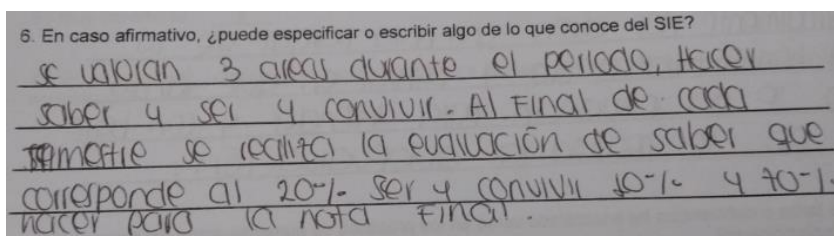 6. En caso afirmativo, ¿puede especificar o escribir algo de lo que conoce del SIE?
se valoran 3 areas durante el periodo, Hacer
saber y ser y convivir. Al Final de cada
se realiza la evaluación de saber que
corresponde al 20% ser y convivir 10% y 70%
hacer para la nota Final.